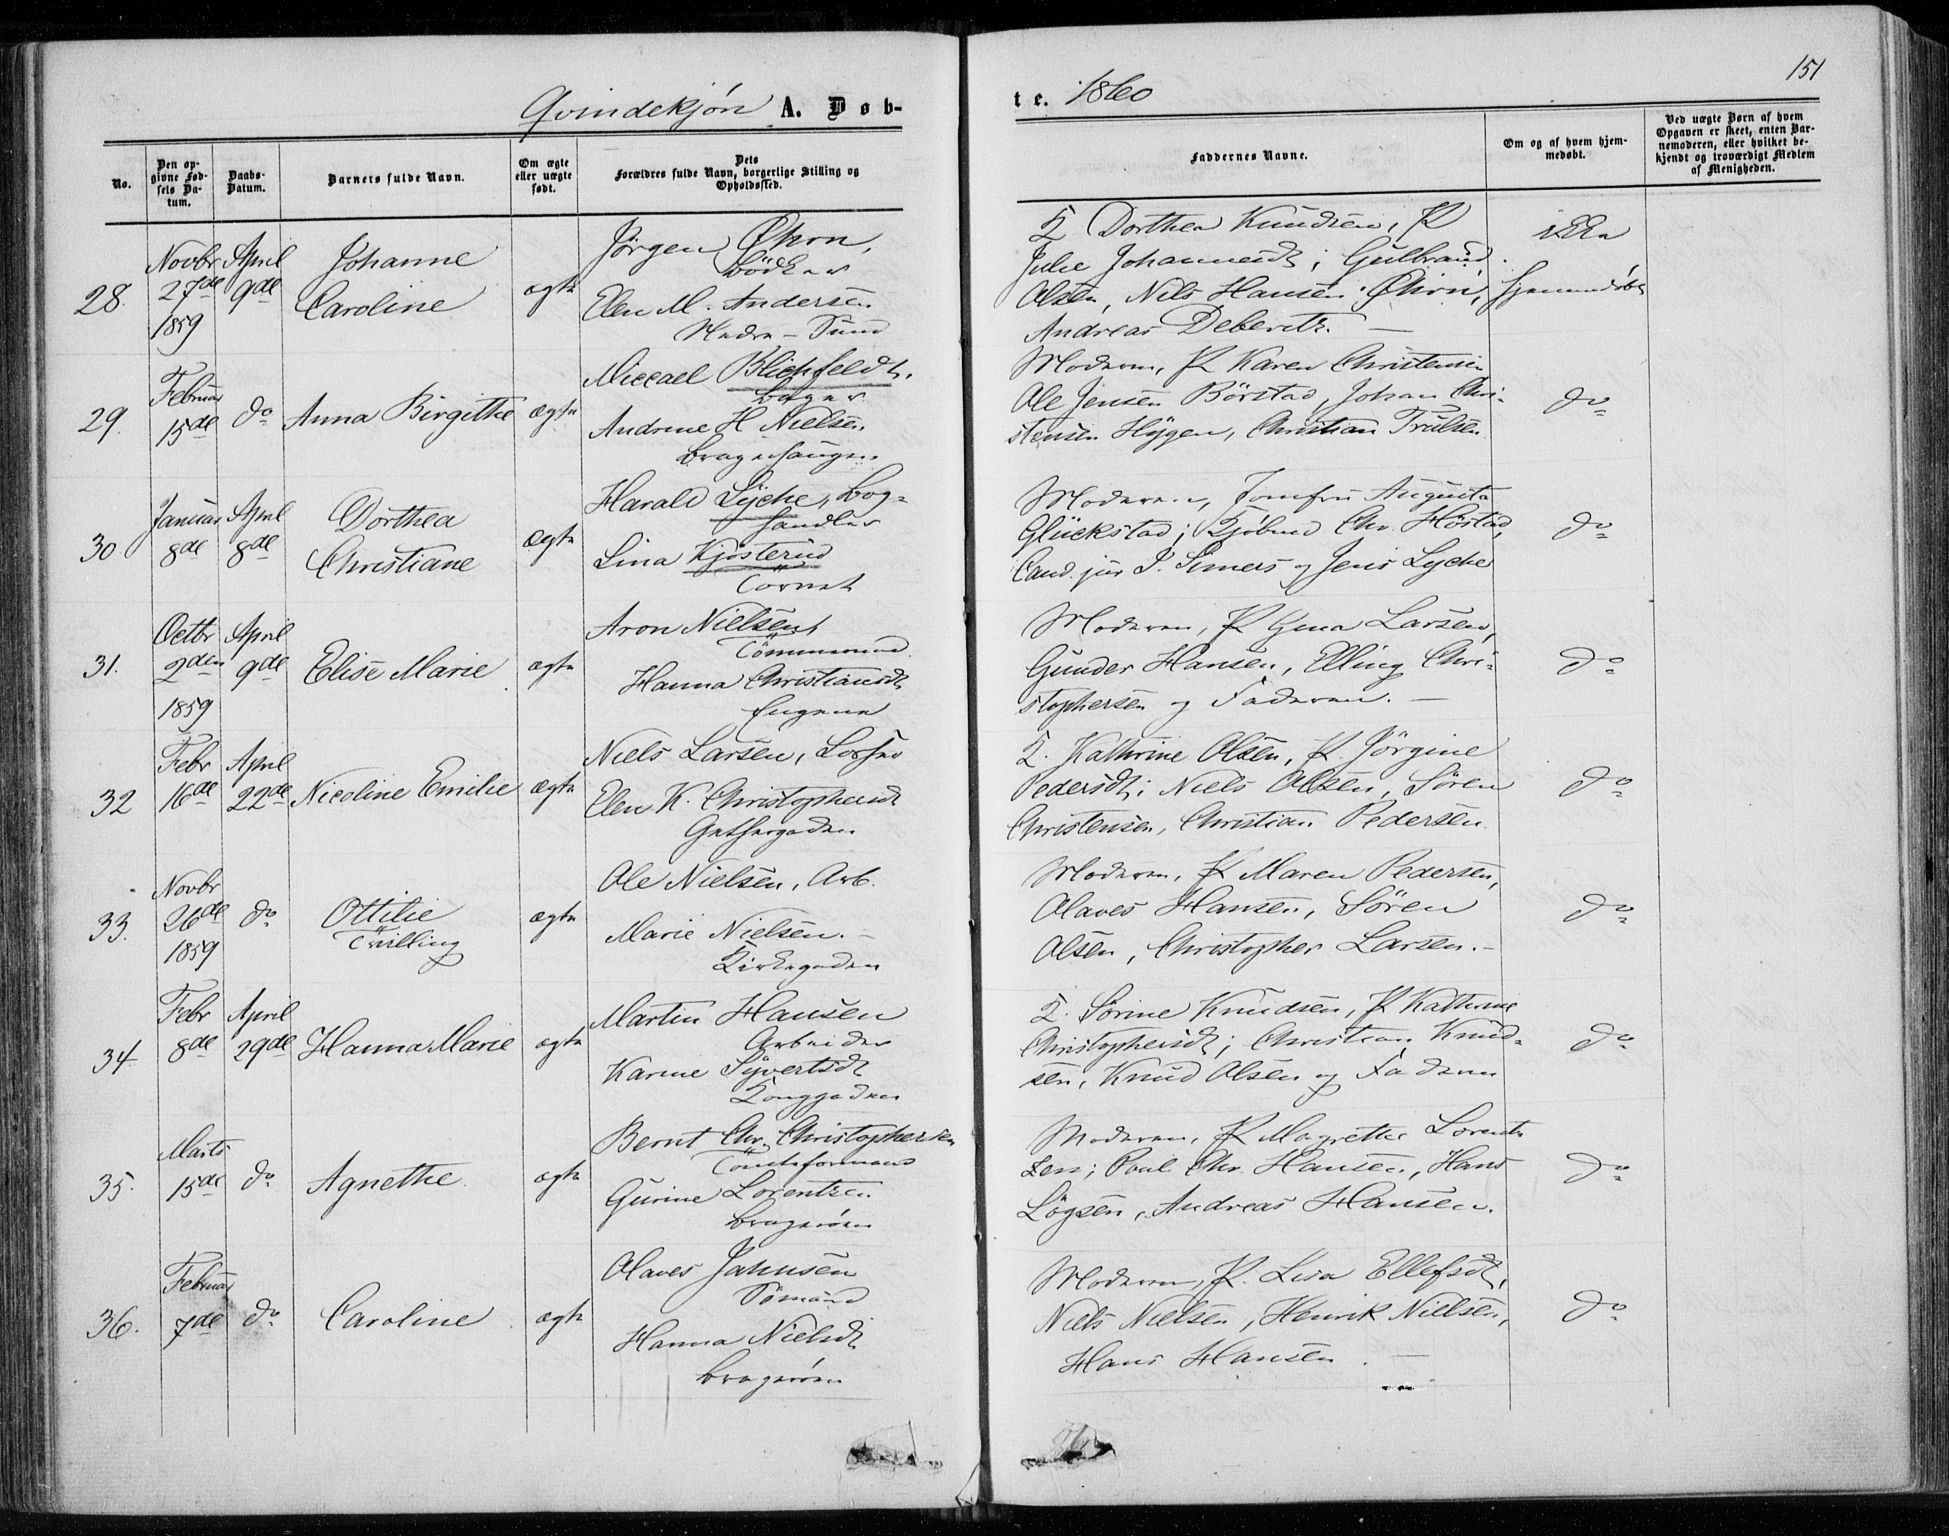 151
Qvindekjøn A. Døb-
te. 1860
No.
Den op-
givne Fød-
sels Da-
tum.
Daabs-
Datum.
Barnets fulde Navn.
Om ægte
eller uægte
født.
Dets
Forældres fulde Navn, borgerlige Stilling og
Opholdssted.
Faddernes Navne.
Om og af hvem hjem-
medøbt.
Ved uægte Børn af hvem
Opgaven er skeet, enten Bar-
nemoderen, eller hvilket be-
kjendt og troværdigt Medlem
af Menigheden.
28.
Novbr
27de
1859
April
9de
Johanne
Caroline
ægte
Jørgen Økron,
Bödker
Elen M. Andersen
Nedre-Sund
K Dorthea Knudsen, P
Julie Johannesdt; Gulbrand
Olsen, Nils Hansen Økron,
Andreas Deberitz. —
ikke
hjemmedøbt
29.
Februar
15de
do
Anna Birgithe
ægte
Miccael Blichfeldt.
Bager
Andrine H Nielsen
Bragerhaugen
Moderen, P Karen Christensen
Ole Jensen Börstad, Johan Chri-
stensen Hÿgen, Christian Trulsen
do
30
Januar
8de
April
8de
Dorthea
Christiane
ægte
Harald Lyche, Bog-
handler
Lina Kjösterud
Törnet
Moderen, Jomfru Augusta
Glückstad; Kjøbmd Chr. Höstad,
Cand. jur J. Simers og Jens Lyche
do
31.
Octbr
2den
1859
April
9de
Elise Marie
ægte
Aron Nielsen
Tömmermd
Hanna Christiansdt
Engene
Moderen, P Gina Larsen,
Gunder Hansen, Elling Chri-
stophersen og Faderen. —
do
32
Febr
16de
April
22de
Nicoline Emilie
ægte
Niels Larsen, Losser
Elen K. Christophersdt
Gethergaden
K. Kathrine Olsen, P. Jörgine
Pedersdt; Niels Olsen, Sören
Christensen, Christian Pedersen.
do
33.
Novbr
26de
1859
do
Ottilie
Tvilling
ægte
Ole Nielsen, Arb.
Marie Nielsen. —
Kirkegaden
Moderen, P Maren Pedersen,
Olaves Hansen, Sören
Olsen, Christopher Larsen. —
do
34
Febr
8de
April
29de
Hanna Marie
ægte
Martin Hansen
Arbeider
Karine Syvertsdt
Konggaden
K. Sörine Knudsen, P Kathrine
Christophersdt; Christian Knud-
sen, Knud Olsen og Faderen
do
35.
Marts
15de
do
Agnethe
ægte
Bernt Chr. Christophersen
Tömteformand
Gurine Lorentzen
Bragerøen
Moderen, P Magrethe Lorent-
zen; Poul Chr. Hansen, Hans
Lögsen, Andreas Hansen.
do
36.
Februar
7de
do
Caroline
ægte
Olaves Jahnsen
Sömand
Hanna Nielsdt
Bragerøen
Moderen, P. Lisa Ellefsdt,
Niels Nielsen, Henrik Nielsen,
Hans Hansen. —
do